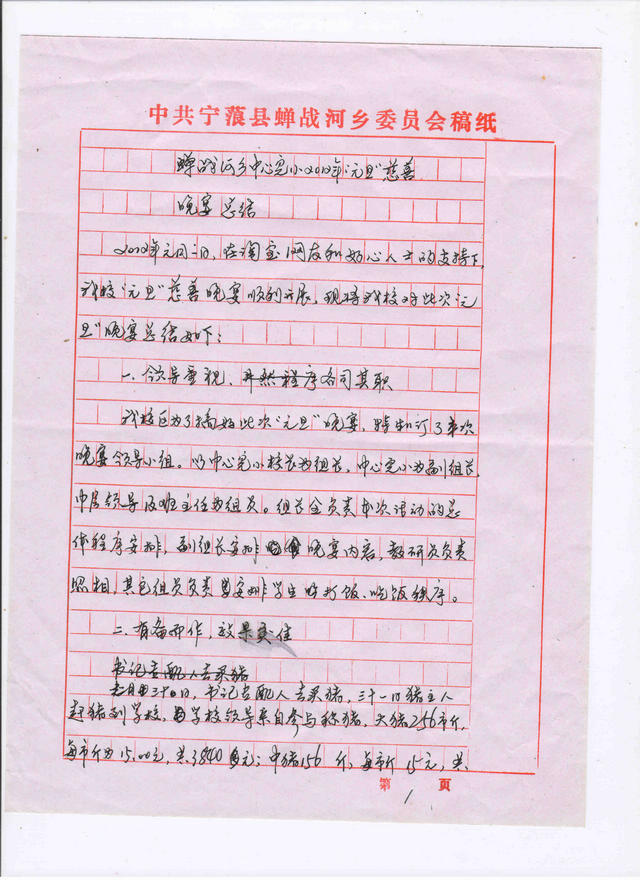 中共宁蒗县蝉战河乡委员会稿纸
蝉战河乡中心完小2012年“元旦”慈善
晚宴总结
2012年元月一日，在淘宝网友和好心人士的支持下，
我校“元旦”慈善晚宴顺利开展，现将我校对此次“元
旦”晚宴总结如下：
一、领导重视、各司其职
我校为了搞好此次“元旦”晚宴，特制订了本次
晚宴领导小组。以中心完小校长为组长，中心完小为副组长，
中层领导及班主任为组员。组长全负责本次活动的总
体程序安排，副组长安排晚宴内容，教研员负责
照相，其它组员负责安排学生打饭、吃饭秩序。
二、有备而作，效果实佳
书记支配人去采猪
三十日，书记支配人去采猪，三十一日猪主人
赶猪到学校，学校领导亲自参与称猪，大猪256市斤，
每市斤为15.00元，共3840元；中猪156斤，每市斤15元，共
第1页